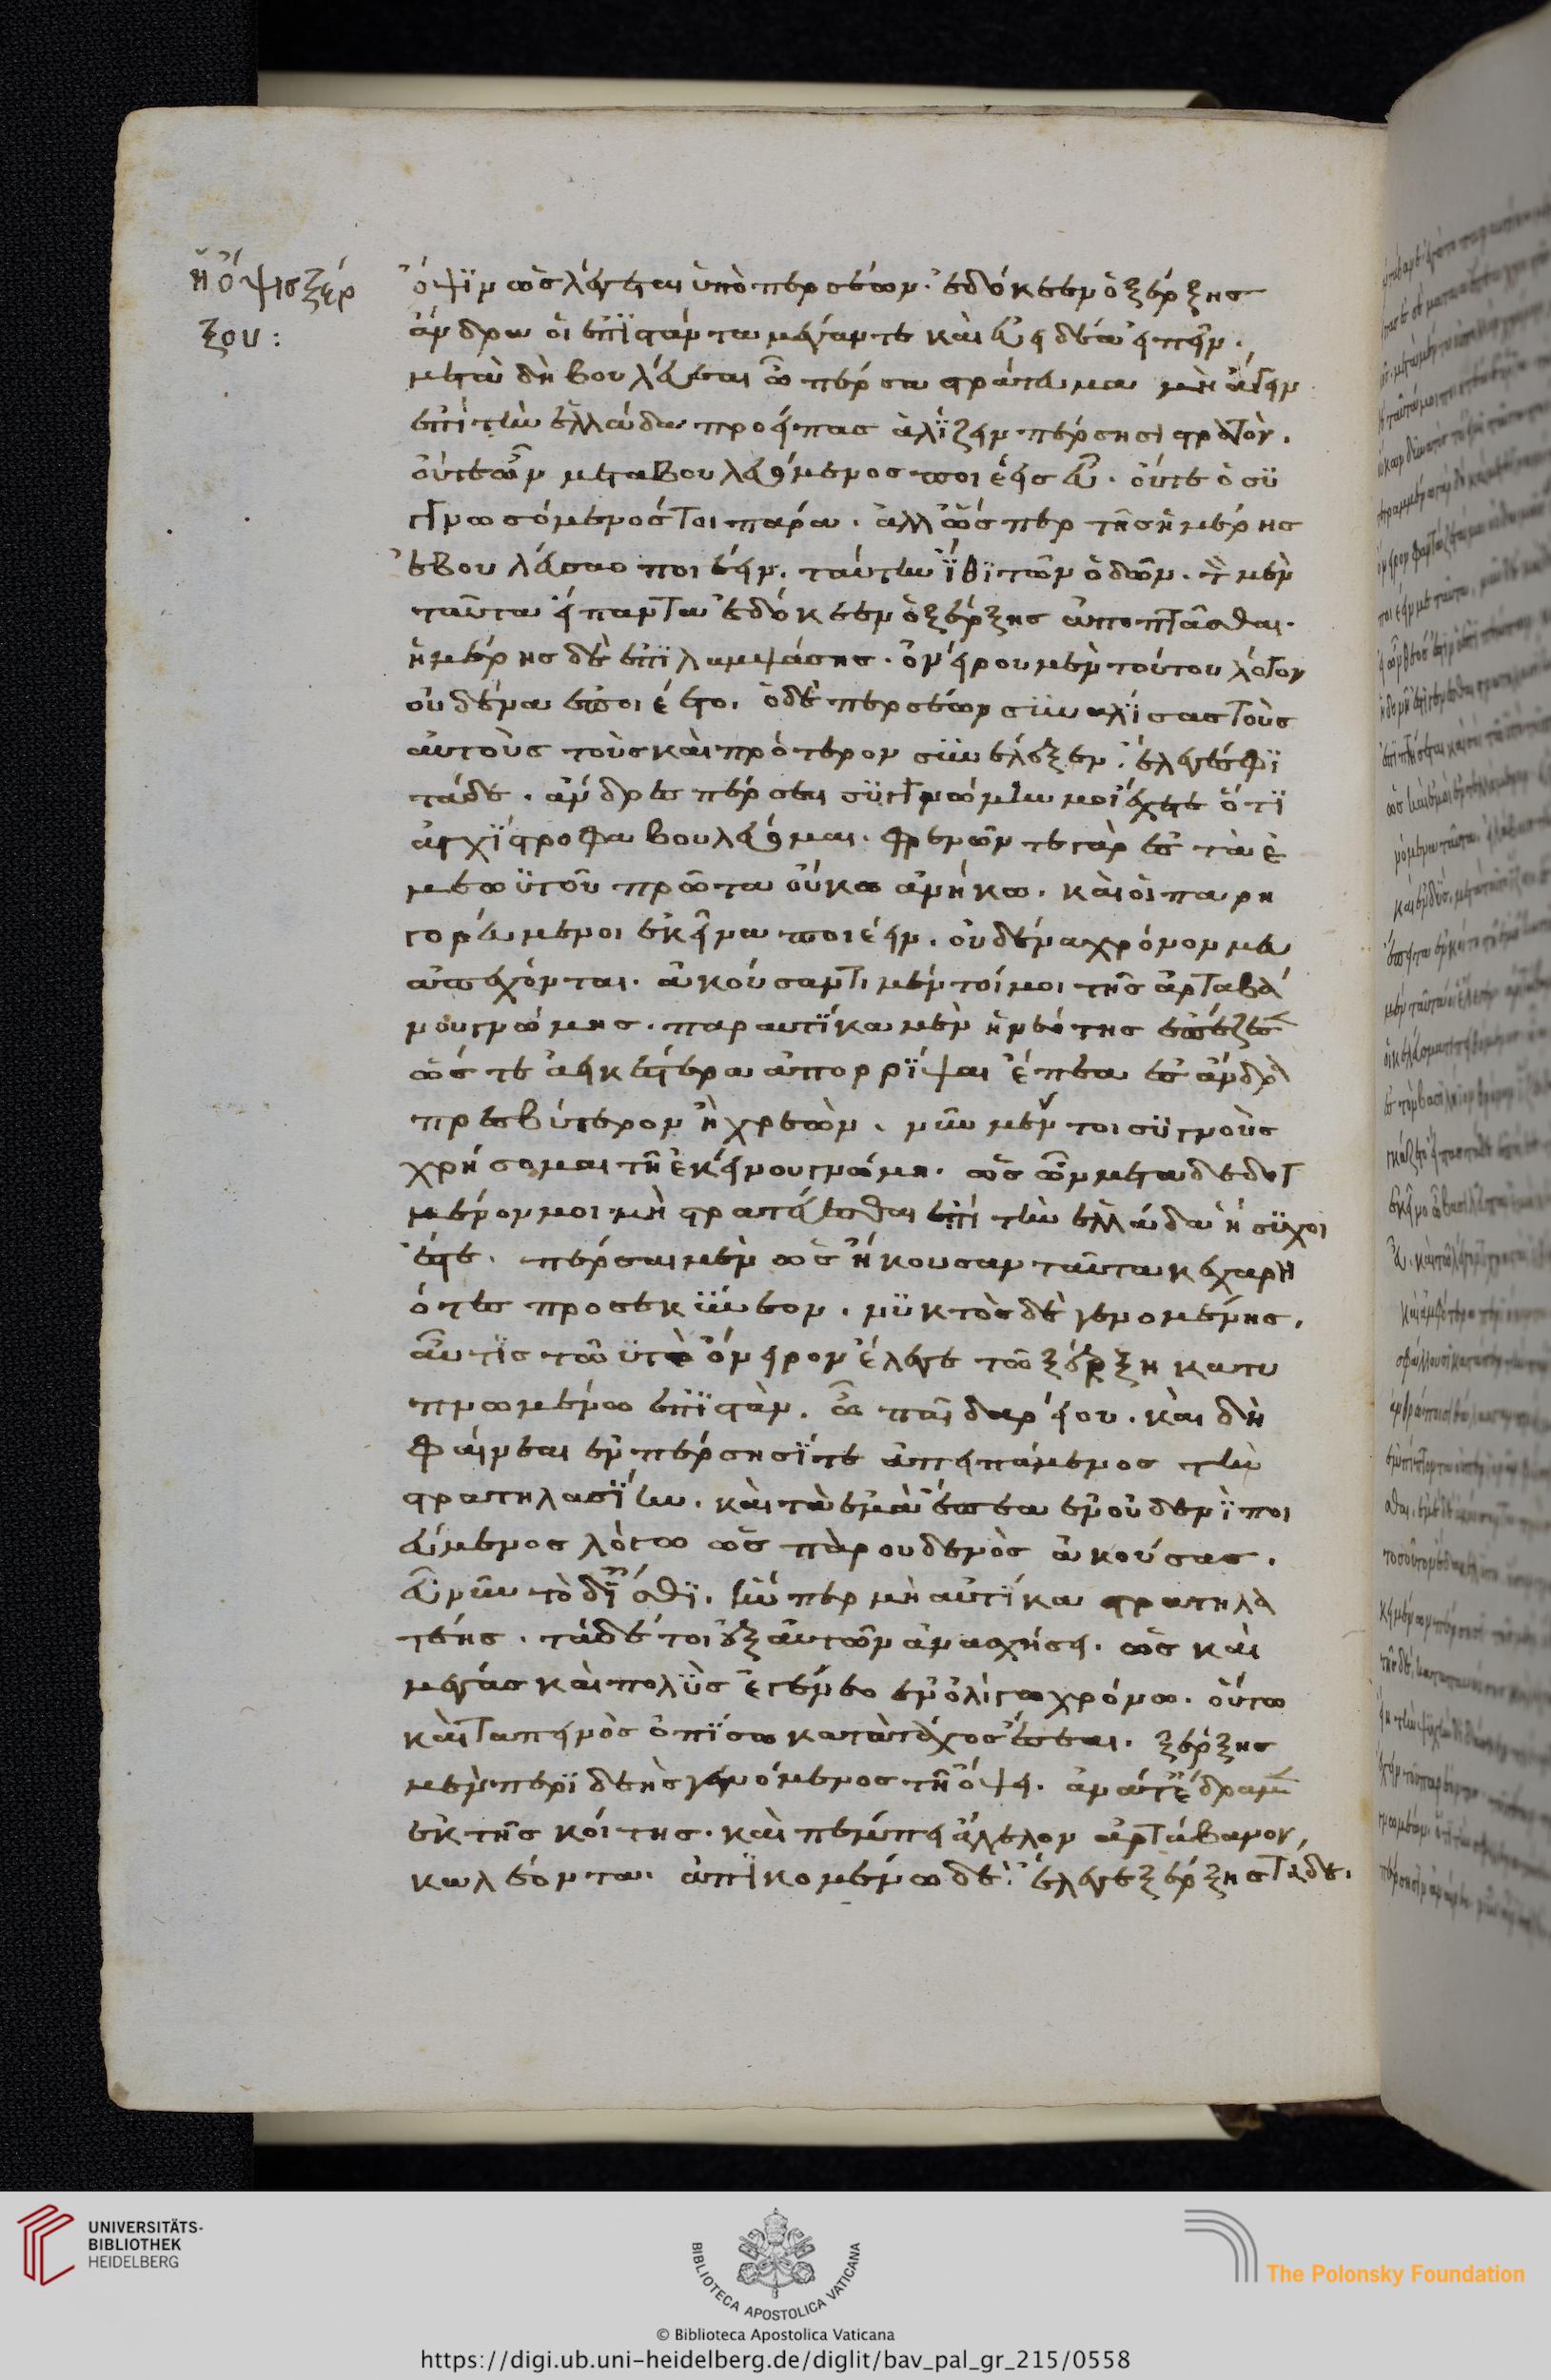 ἡ ὄψις ξέρ
ξου:
ὄψϊν ὡς λέγεται ὑπὸ περσέων. ἐδόκεεν ὁ ξέρξης
ἄνδρα οἱ ἐπϊστάντα μέγαν τε καὶ εὐειδέα εἰπεῖν.
μετὰ δὴ βουλεύεαι ὦ πέρσα στράτευμα μὴ ἄγειν
ἐπὶ τὴν ἑλλάδα προείπας ἁλΐζειν πέρσησι στρατόν.
οὔτε ὦν μεταβουλευόμενος ποιέεις εὖ. οὔτε ὁ συγ
γνωσόμενός τοι πάρα. ἀλλ' ὥσπερ τῆς ἡμέρης
ἐβουλεύσαο ποιέειν. ταύτην ἴθϊ τῶν ὁδῶν. τὸν μὲν
ταῦτα εἴπαντα ἐδόκεεν ὁ ξέρξης ἀποπτᾶσθαι.
ἡμέρης δὲ ἐπϊλαμψάσης. ὀνείρου μὲν τούτου λόγον
οὐδένα ἐποιέετο. ὁ δὲ περσέων συναλΐσας τοὺς
αὐτοὺς τοὺς καὶ πρότερον συνέλεξεν. ἔλεγέ σφϊ
τάδε. ἄνδρες πέρσαι συγγνώμην μοι ἔχετε ὅτϊ
ἀγχΐστροφα βουλεύομαι. φρενῶν τε γὰρ ἐς τὰ ἐ
μεωϋτοῦ πρῶτα οὔκω ἀνήκω. καὶ οἱ παρη
γορεύμενοι ἐκεῖνα ποιέειν. οὐδένα χρόνον μευ
ἀπέχονται. ἀκούσαντι μέν τοί μοι τῆς ἀρταβά
νου γνώμης. παραυτΐκα μὲν ἡ νεότης ἐπέζεσε
ὥστε ἀεικέστερα ἀπορρΐψαι ἔπεα ἐς ἄνδρα
πρεσβύτερον ἢ χρεών. νῦν μέν τοι συγγνοὺς
χρήσομαι τῇ ἐκείνου γνώμη. ὡς ὦν μεταδεδογ
μένον μοι μὴ στρατεύεσθαι ἐπὶ τὴν ἑλλάδα ἥσυχοι
ἔστε. πέρσαι μὲν ὡς ἤκουσαν ταῦτα κεχαρη
ότες προσεκύνεον. νϋκτὸς δὲ γενομένης.
αὖτϊς τὠϋτὸ ὄνειρον ἔλεγε τῶ ξέρξη κατυ
πνωμένω ἐπϊστάν. ὦ παῖ δαρείου. καὶ δὴ
φαίνεαι ἐν πέρσησΐ τε ἀπειπάμενος τὴν
στρατηλασΐην. καὶ τὰ ἐμὰ ἔπεα ἐν οὐδενΐ ποι
εύμενος λόγω ὡς πὰρ οὐδενὸς ἀκούσας.
εὖ νῦν τὸδ' ἴσθϊ. ἤν περ μὴ αὐτΐκα στρατηλα
τέης. τάδε τοι ἐξ αὐτῶν ἀνασχήσει. ὡς καὶ
μέγας καὶ πολΰς ἐγένεο ἐν ὀλίγω χρόνω. οὕτω
καὶ ταπεινὸς ὀπΐσω κατὰ τάχος ἔσεαι. ξέρξης
μὲν περϊδεὴς γενόμενος τῇ ὄψει. ἀνά τε ἔδραμε
ἐκ τῆς κοίτης. καὶ πέμπει ἄγγελον ἀρτάβανον,
καλέοντα. ἀπϊκομένω δὲ. ἔλεγε ξέρξης τάδε.
UNIVERSITÄTS-
BIBLIOTHEK
HEIDELBERG
BIBLIOTECA APOSTOLICA VATICANA
The Polonsky Foundation
© Biblioteca Apostolica Vaticana
https://digi.ub.uni-heidelberg.de/diglit/bav_pal_gr_215/0558